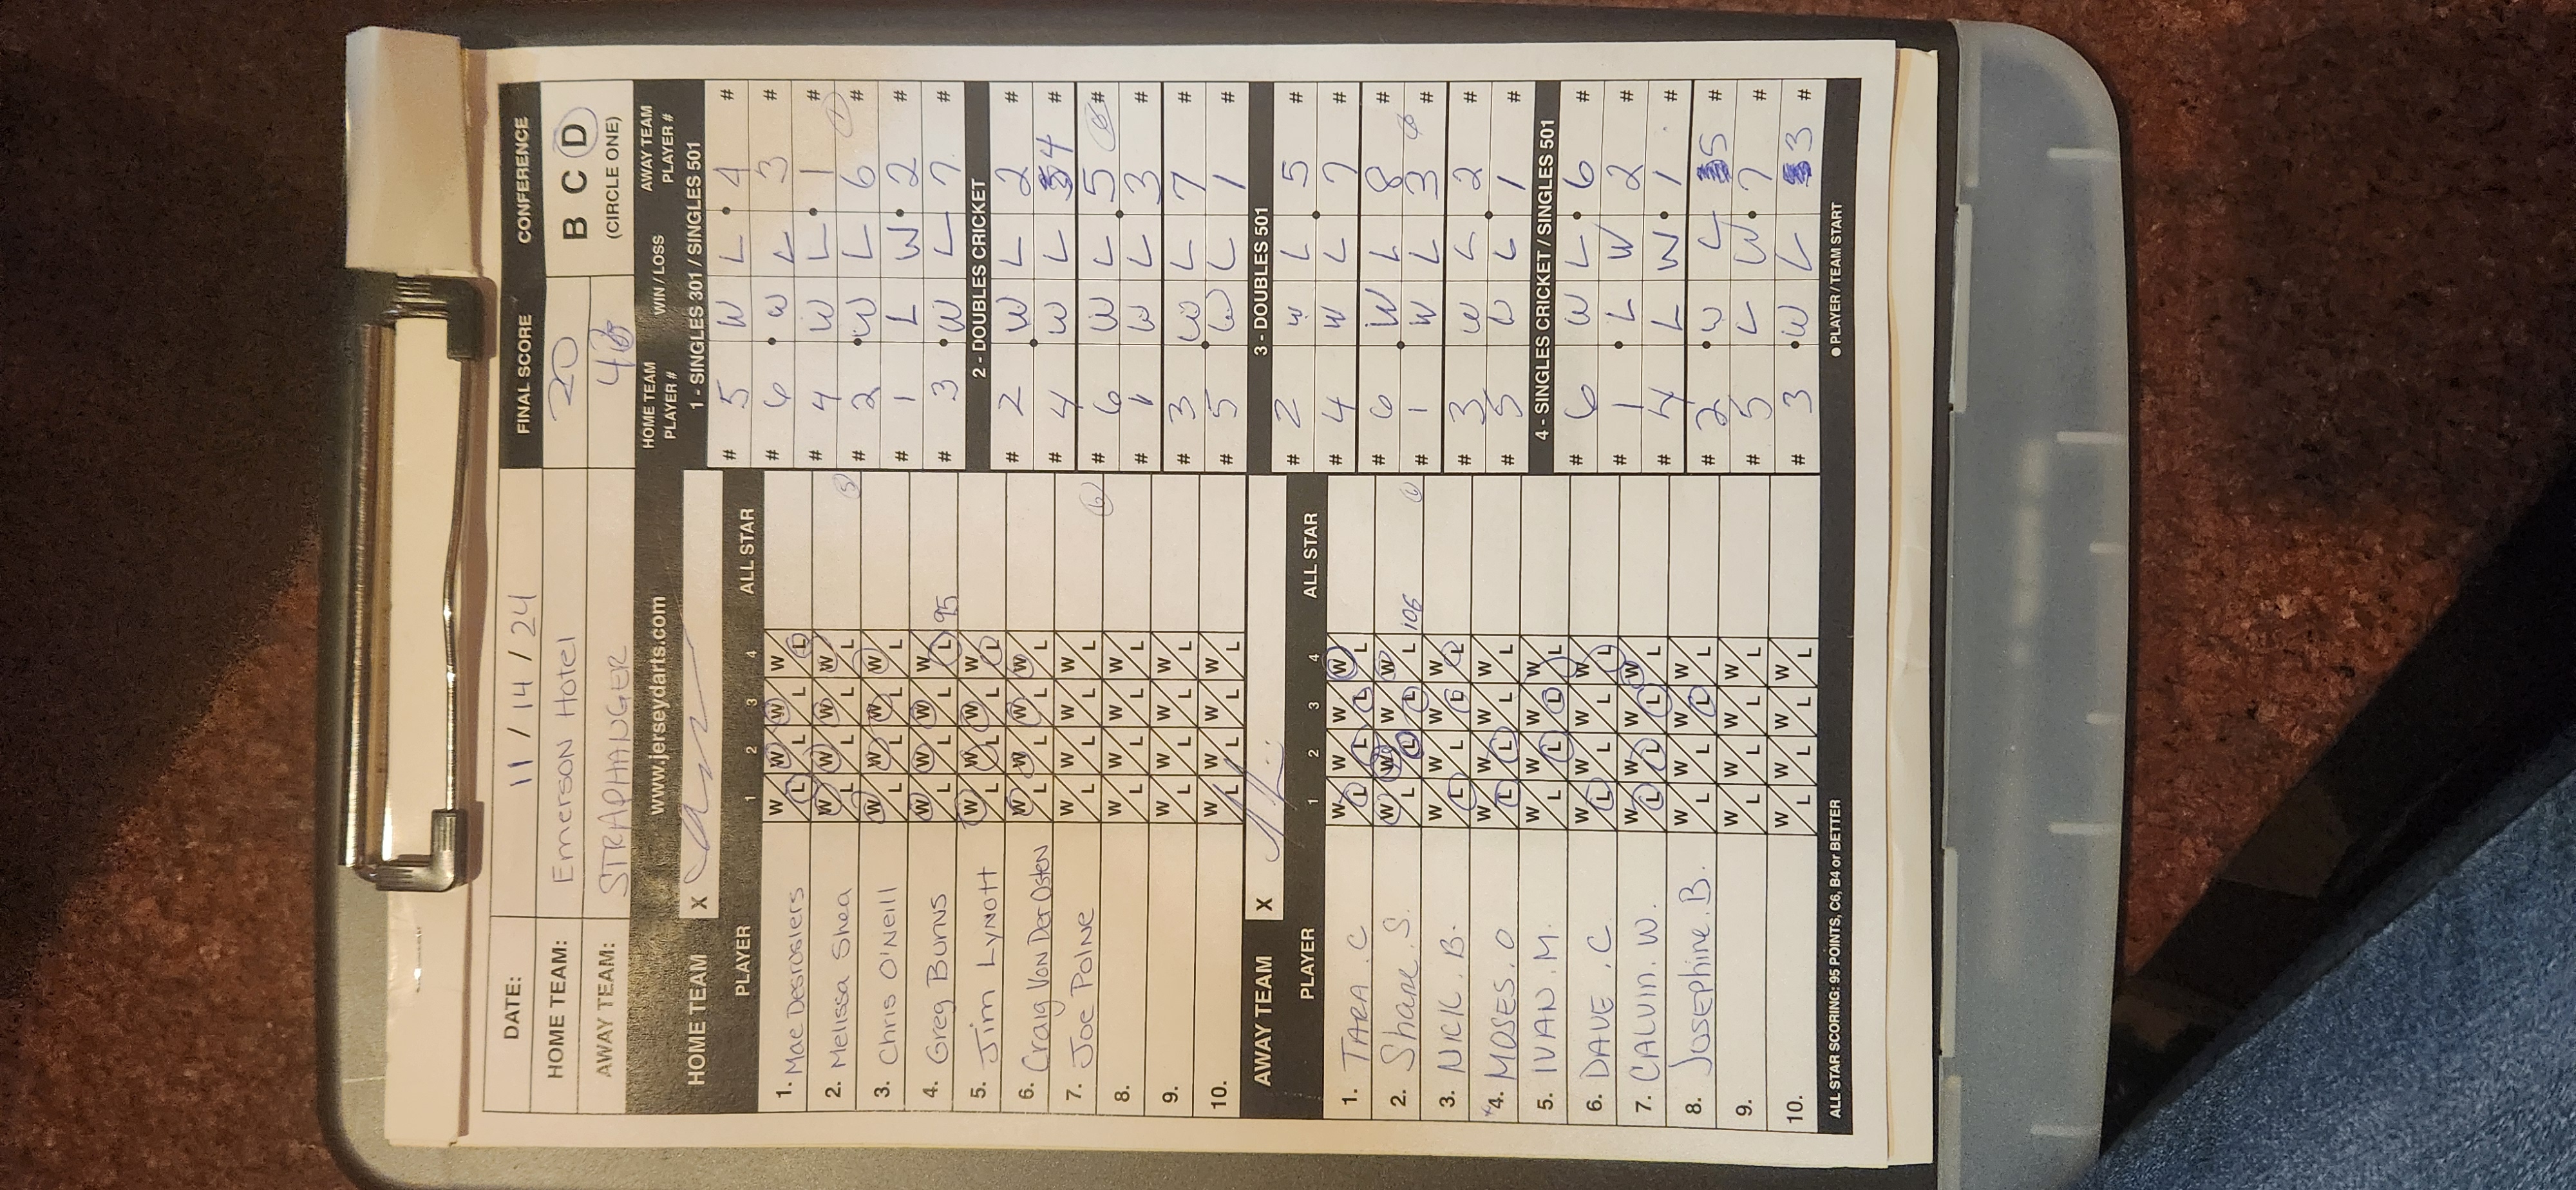 DATE: 11 / 14 / 24 FINAL SCORE CONFERENCE
HOME TEAM: Emerson Hotel 20 B C D
AWAY TEAM: STRAPHANGER (CIRCLE ONE)
www.jerseydarts.com
HOME TEAM X
PLAYER 1 2 3 4 ALL STAR
1. Mae Desrosiers W L W L W L W L
2. Melissa Shea W L W L W L W L 5
3. Chris O'Neill W L W L W L W L
4. Greg Burns W L W L W L W L 95
5. Jim Lynott W L W L W L W L
6. Craig Von Der Osten W L W L W L W L
7. Joe Polne W L W L W L W L
8. W L W L W L W L
9. W L W L W L W L
10. W L W L W L W L
AWAY TEAM X
PLAYER 1 2 3 4 ALL STAR
1. TARA . C W L W L W L W L
2. Shane . S. W L W L W L W L 106
3. NICK . B. W L W L W L W L
4. MOSES . O W L W L W L W L
5. IVAN . M. W L W L W L W L
6. DAVE . C W L W L W L W L
7. CALVIN . W. W L W L W L W L
8. JOSEPHINE . B. W L W L W L W L
9. W L W L W L W L
10. W L W L W L W L
ALL STAR SCORING: 95 POINTS, C6, B4 or BETTER
HOME TEAM PLAYER # WIN / LOSS AWAY TEAM PLAYER #
1 - SINGLES 301 / SINGLES 501
# 5 W L 4 #
# 6 W L 3 #
# 4 W L 1 #
# 2 W L 6 #
# 1 L W 2 #
# 3 W L 7 #
2 - DOUBLES CRICKET
# 2 W L 2 #
# 4 W L 4 #
# 6 W L 5 #
# 1 W L 3 #
# 3 W L 7 #
# 5 W L 1 #
3 - DOUBLES 501
# 2 W L 5 #
# 4 W L 7 #
# 6 W L 8 #
# 1 W L 3 #
# 3 W L 2 #
# 5 W L 1 #
4 - SINGLES CRICKET / SINGLES 501
# 6 W L 6 #
# 1 L W 2 #
# 4 L W 1 #
# 2 W L 5 #
# 5 L W 7 #
# 3 W L 3 #
● PLAYER / TEAM START